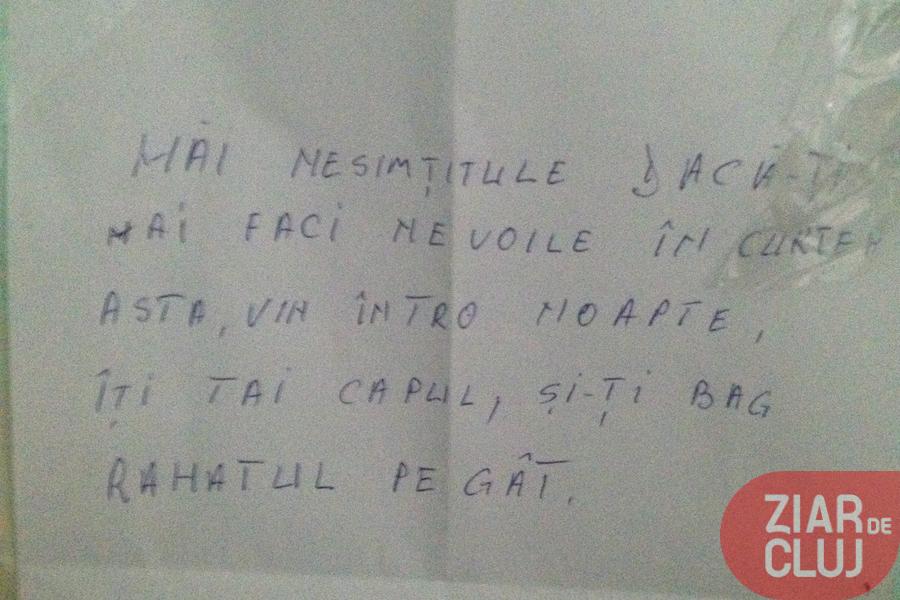 MĂI NESIMȚITULE DACĂ-ȚI
MAI FACI NEVOILE ÎN CURTEA
ASTA, VIN ÎNTRO NOAPTE,
ÎȚI TAI CAPUL, ȘI-ȚI BAG
RAHATUL PE GÂT.
ZIAR DE
CLUJ